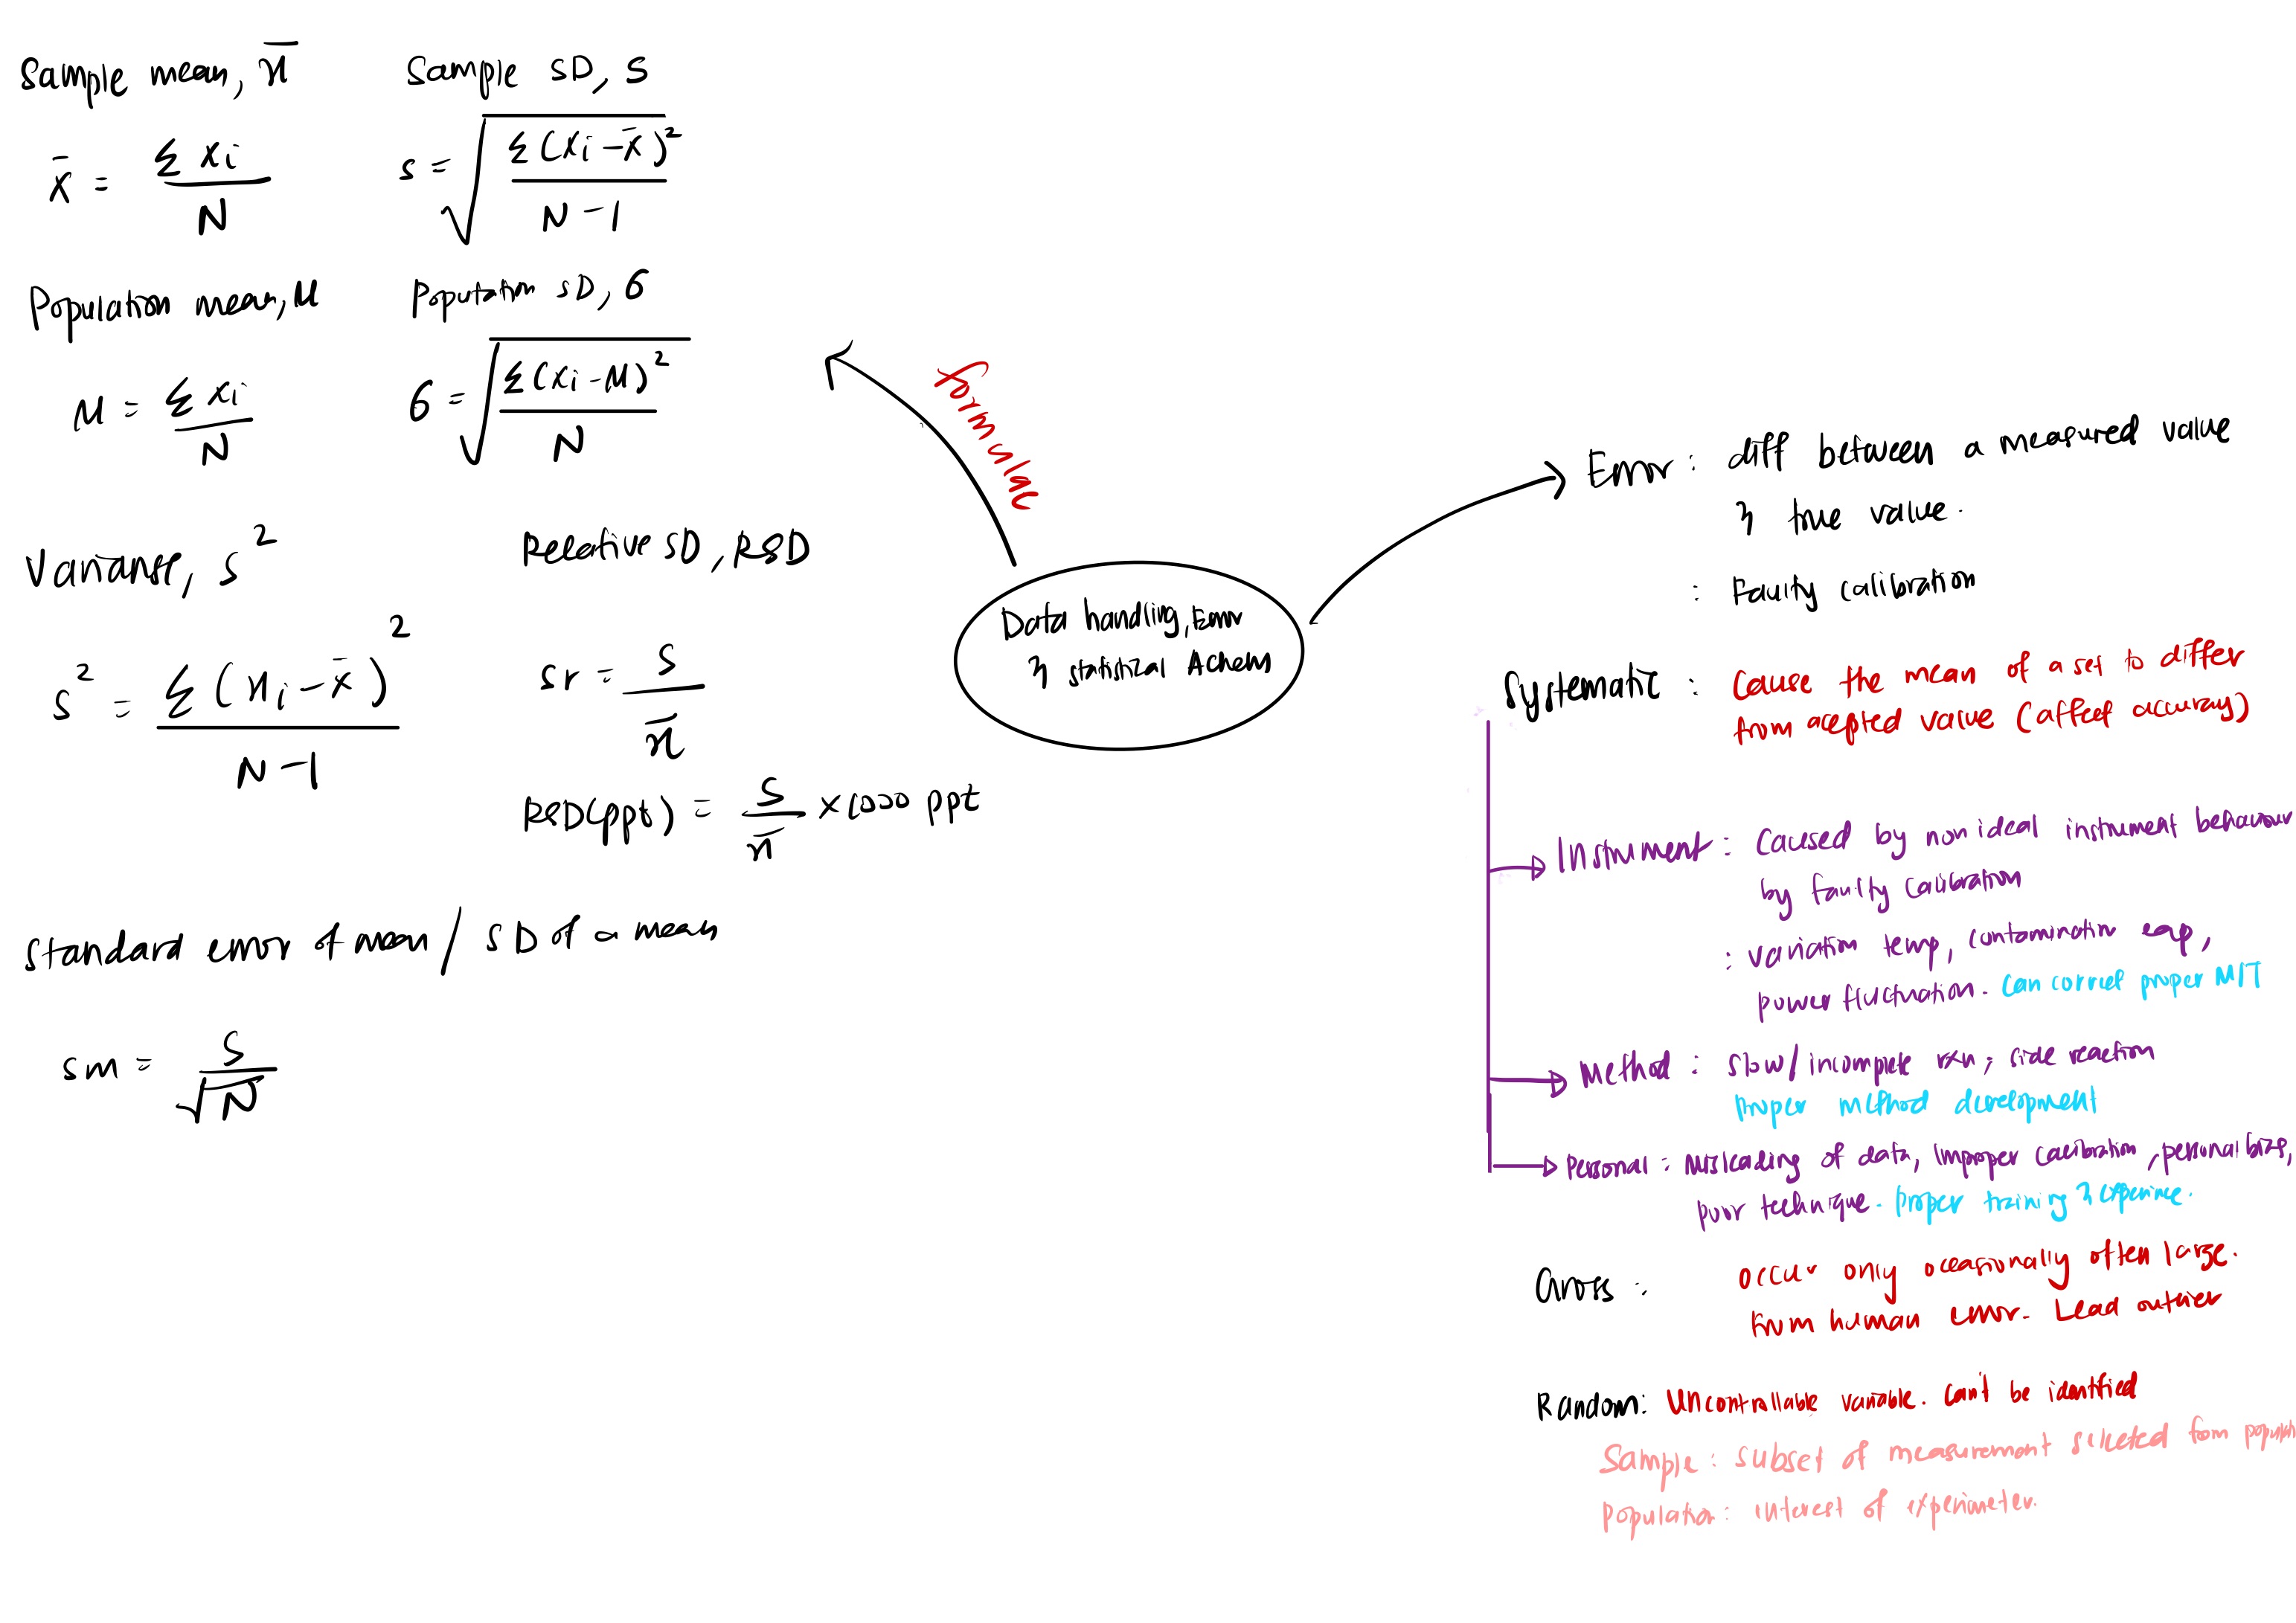 Sample mean, x̄
x̄ = Σxi / N
Sample SD, s
s = √(Σ(xi - x̄)² / N - 1)
Population mean, μ
μ = Σxi / N
Population SD, σ
σ = √(Σ(xi - μ)² / N)
Varianse, s²
s² = Σ(xi - x̄)² / N - 1
Relative SD, RSD
sr = s / x̄
RSD(ppt) = s / x̄ × 1000 ppt
Standard error of mean / SD of a mean
sm = s / √N
formulae
Data handling, Error
& statistical Achem
Error : diff between a measured value
& true value.
: Faulty calibration
Systematic : Cause the mean of a set to differ
from acepted value (affect accuray)
Instrument : Caused by non ideal instrument behaviour
by faulty calibration
: variation temp, contamination eqp,
power fluctuation. Can correct proper MIT
Method : Slow/incomplete rxn; side reaction
Proper method development
Personal : Misleading of data, improper calibration, personal bias,
poor technique. Proper training & experince.
Gross : occur only occasionally often large.
from human error. Lead outlier
Random : Uncontrollable variable. Can't be identified
Sample : subset of measurement selected from
Population : interest of experimeter.